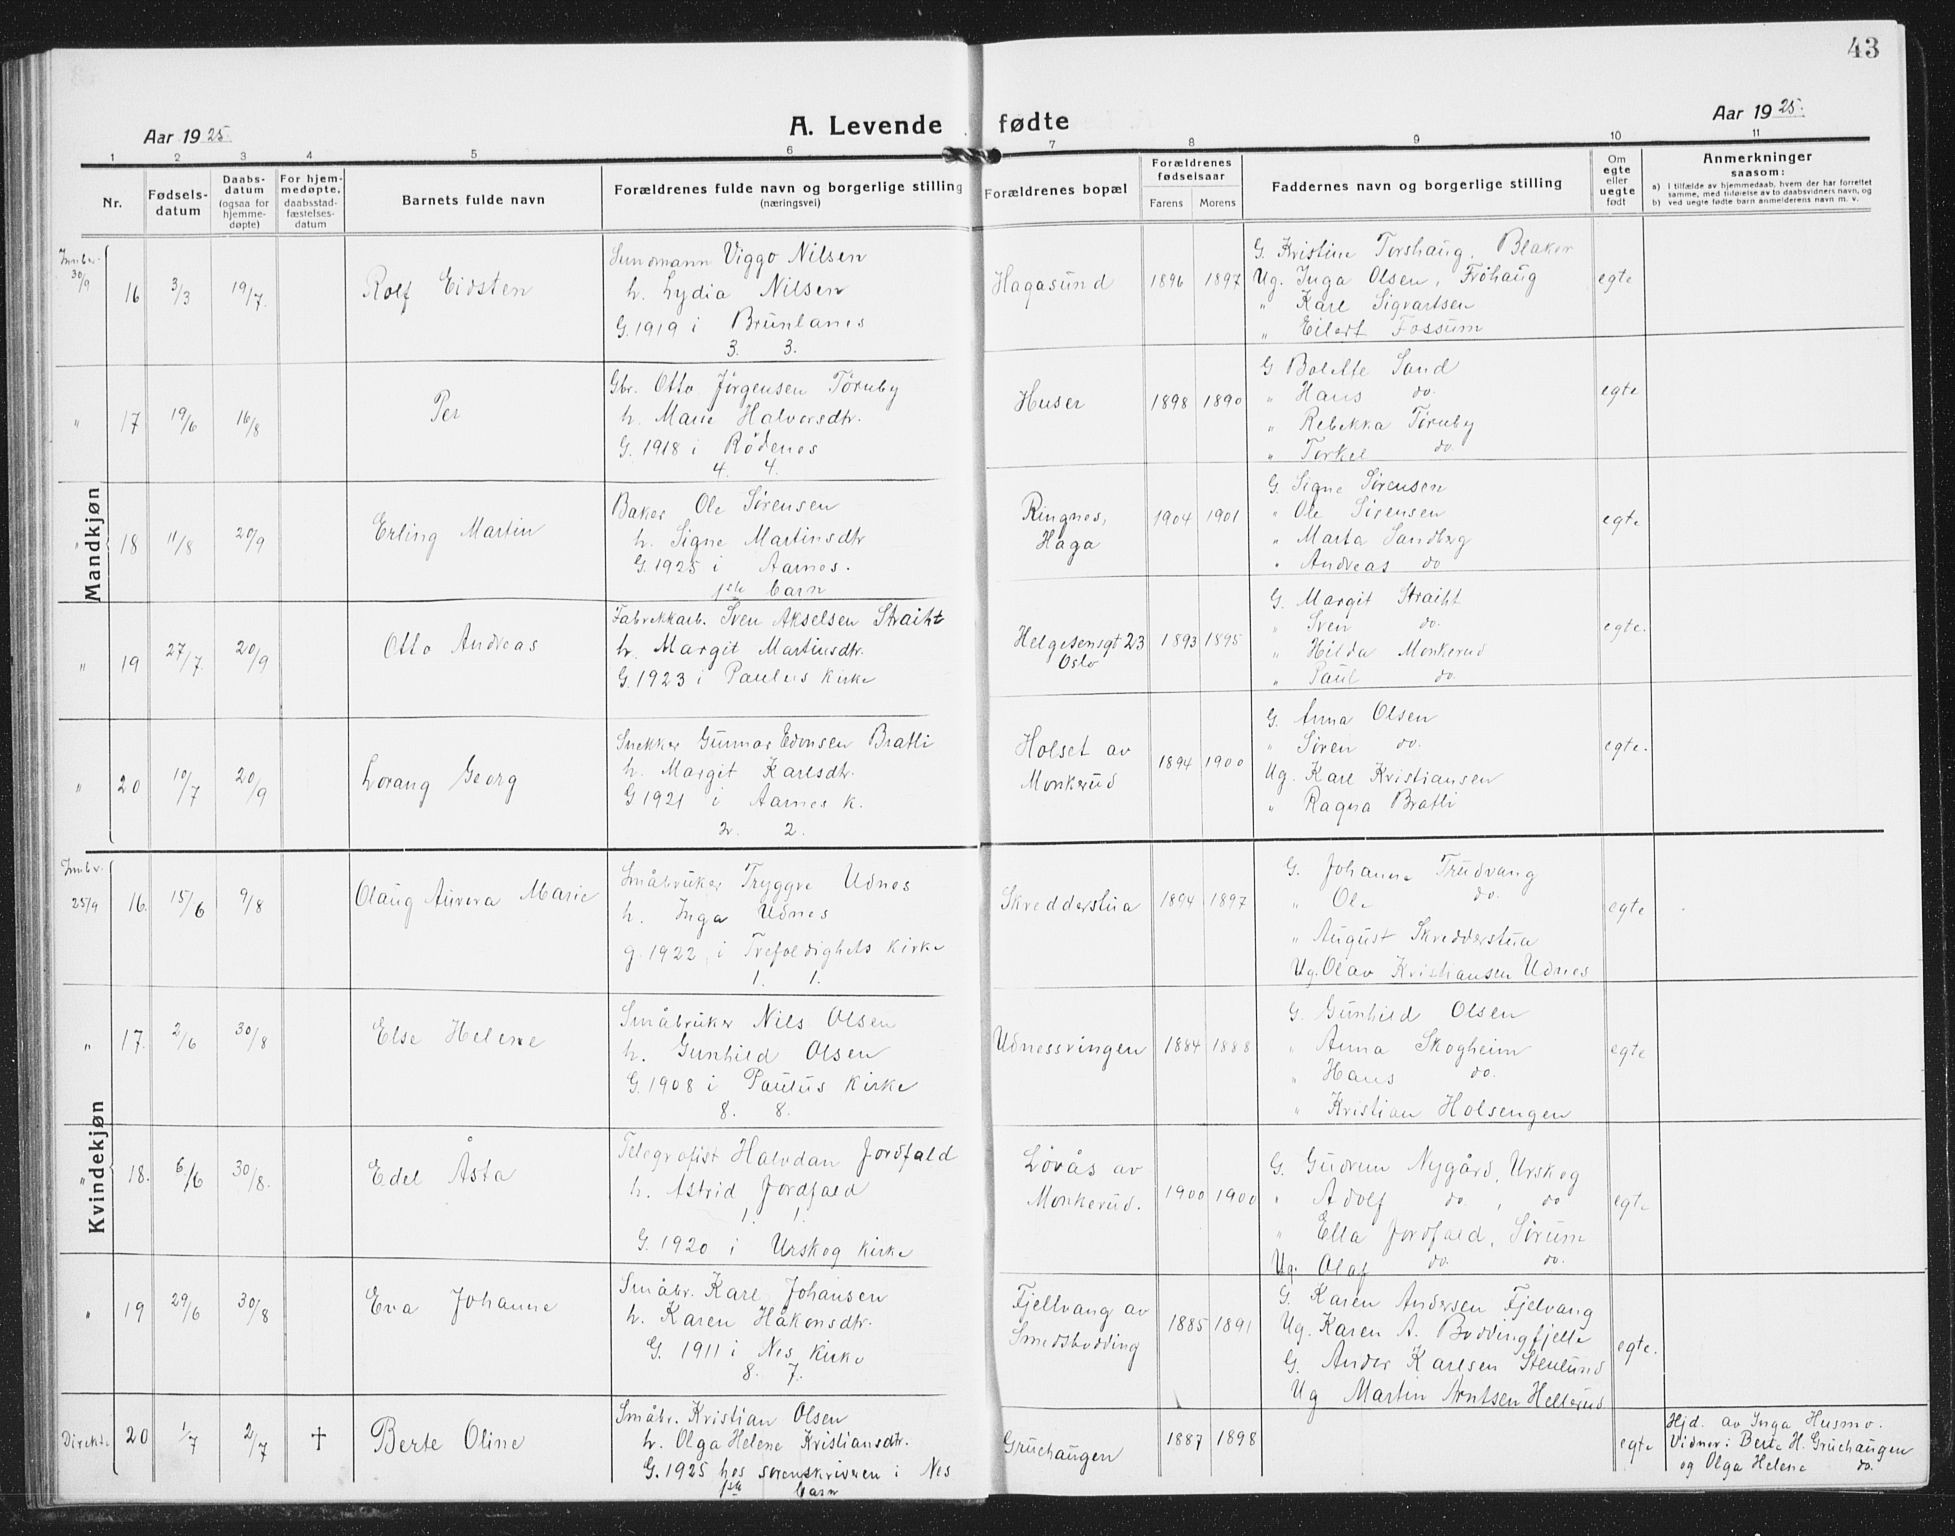 43
Aar 1925.
A. Levende fødte
Aar 1925.
1 2 3 4 5 6 7 8 9 10 11
Nr.
Fødselsdatum
Daabsdatum (ogsaa for hjemmedøpte)
For hjemmedøpte, daabsstadfæstelsesdatum
Barnets fulde navn
Forældrenes fulde navn og borgerlige stilling (næringsvei)
Forældrenes bopæl
Forældrenes fødselsaar
Farens Morens
Faddernes navn og borgerlige stilling
Om egte eller uegte født
Anmerkninger saasom:
a) I tilfælde av hjemmedaab, hvem der har forrettet samme, med tilføielse av to daabsvidners navn, og
b) ved uegte fødte barn anmelderens navn m. v.
Mandkjøn
Innber. 30/9
16 3/3 19/7. Rolf Eidsten
Viggo Nilsen
h. Lydia Nilsen
G. 1919 i Brunlanes
3. 3.
Hagasund 1896 1897
G. Kristine Torshaug, Blaker
Ug. Inga Olsen, Frøhaug
" Karl Sigvartsen
" Eilert Fossum
egte
" 17 19/6 16/8 Per
Gbr. Otto Jørgensen Tørnby
h. Marie Halvorsdtr.
G. 1918 i Rødenes
4. 4.
Huser 1898 1890
G Bolette Sand
" Hans do.
" Rebekka Tørnby
" Torkel do.
egte
" 18 11/8 20/9 Erling Martin
Baker Ole Sørensen
h. Signe Martinsdtr
G. 1925 i Aarnes.
1ste barn
Ringnes, Haga 1904 1901
G. Signe Sørensen
" Ole Sørensen
" Marta Sandberg
" Andreas do
egte
" 19 27/7. 20/9 Otto Andreas
Fabrekkarb. Sven Akselsen Straiht
h. Margit Martinsdtr.
G. 1923 i Paulus kirke
Helgesensgt 23 Oslo 1893 1895
G. Margit Straiht
" Sven do.
" Hilda Monkerud
" Paul do.
egte.
" 20 10/7 20/9 Lorang Georg
Snekker Gunnar Edvnsen Bratli
h. Margit Karlsdtr.
G 1921 i Aarnes k.
2. 2.
Holset av Monkerud 1894 1900
G. Anna Olsen
" Søren do.
Ug. Karl Kristiansen
" Ragna Bratli
egte.
Kvindekjøn
Innbr. 25/9
16. 15/6 9/8 Olaug Aurora Marie
Småbruker Tryggve Udnes
h. Inga Udnes
g. 1922, i Trefoldighets kirke
1. 1.
Skredderstua 1894 1897
G. Johanne Trudvang
" Ole do.
" August Skredderstua
Ug. Olav Kristiansen Udnes
egte
" 17. 2/6 30/8 Else Helene
Småbruker Nils Olsen
h. Gunhild Olsen
G. 1908 i Paulus kirke
8. 8.
Udnessvingen 1884 1888
G. Gunhild Olsen
" Anna Skogheim
" Hans do.
" Kristian Holsengen
egte
" 18. 6/6 30/8. Edel Åsta
Telegrafist Halvdan Jordfald
h. Astrid Jordfald
1. 1.
G. 1920 i Urskog kirke
Løvås av Monkerud. 1900 1900
G. Gudrun Nygård, Urskog
" Adolf do. , do
" Ella Jordfald, Sørum
Ug. Olaf do. do.
egte
" 19 29/6 30/8 Eva Johanne
Småbr. Karl Johansen
h. Karen Håkonsdtr.
G. 1911 i Nes kirke
8. 7.
Fjellvang av Smedsbodding 1885 1891
G. Karen Andersen Fjelvang
Ug. Karen A. Boddingfjelle
G. Ander Karlsen Stenlund
Ug Martin Arntsen Hellerud
egte.
Direkte 20 1/7 2/7 † Berte Oline
Småbr. Kristian Olsen
h. Olga Helene Kristiansdtr.
G. 1925 hos sorenskriveren i Nes
1ste barn
Gruehaugen 1887 1898
egte
Hjd. av Inga Husmo.
Vidner: Berte H. Gruehaugen
og Olga Helene do.